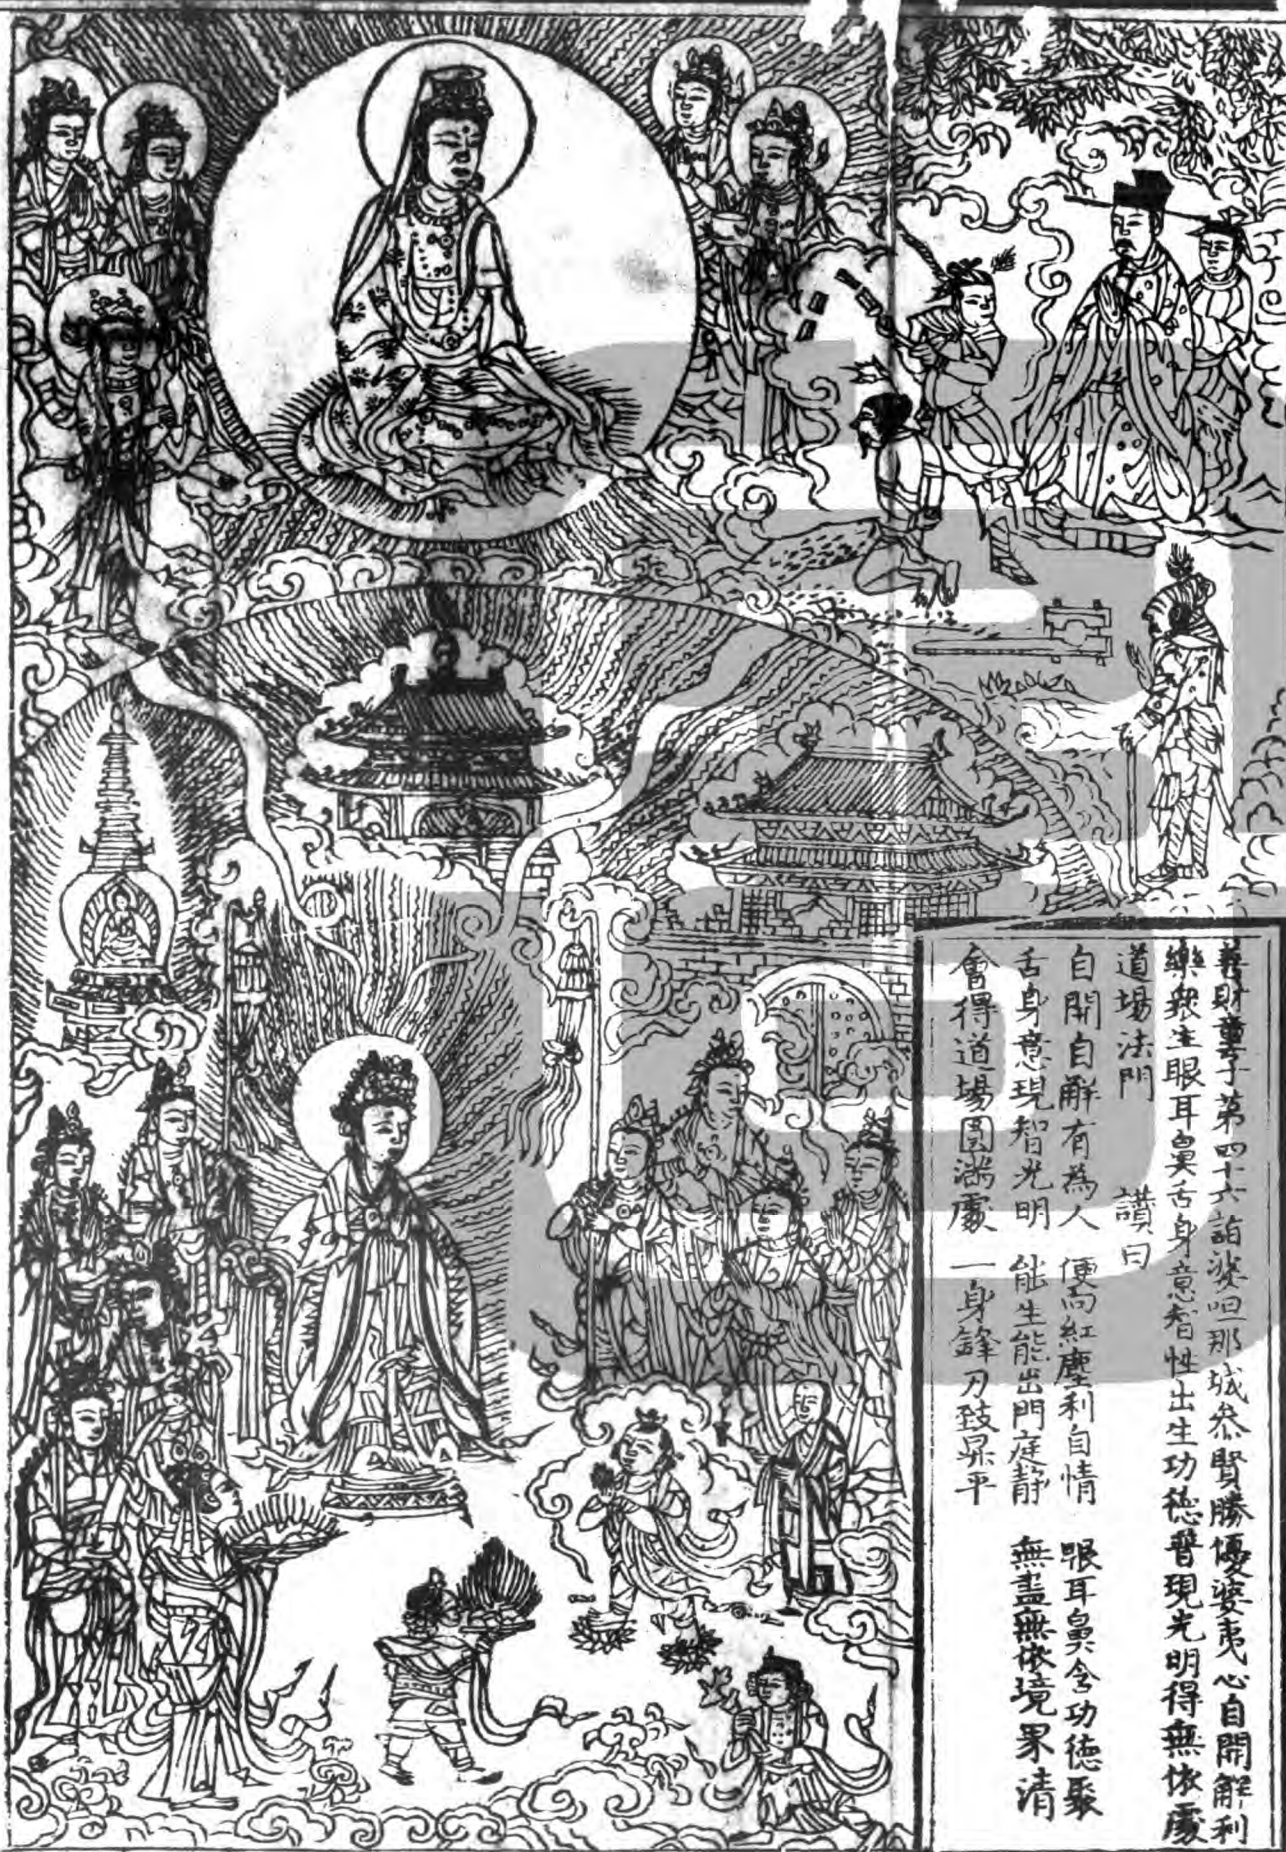 善財童子第四十六詣婆呾那城叅賢勝優婆夷心自開解利
樂衆生眼耳鼻舌身意智性出生功德普現光明得無依處
道場法門　讃曰
自開自解有為人　便向紅塵利自情　眼耳鼻舌功德聚
舌身意現智光明　能生能出門庭静　無盡無依境界清
會得道場圓滿處　一身鋒刃致昇平